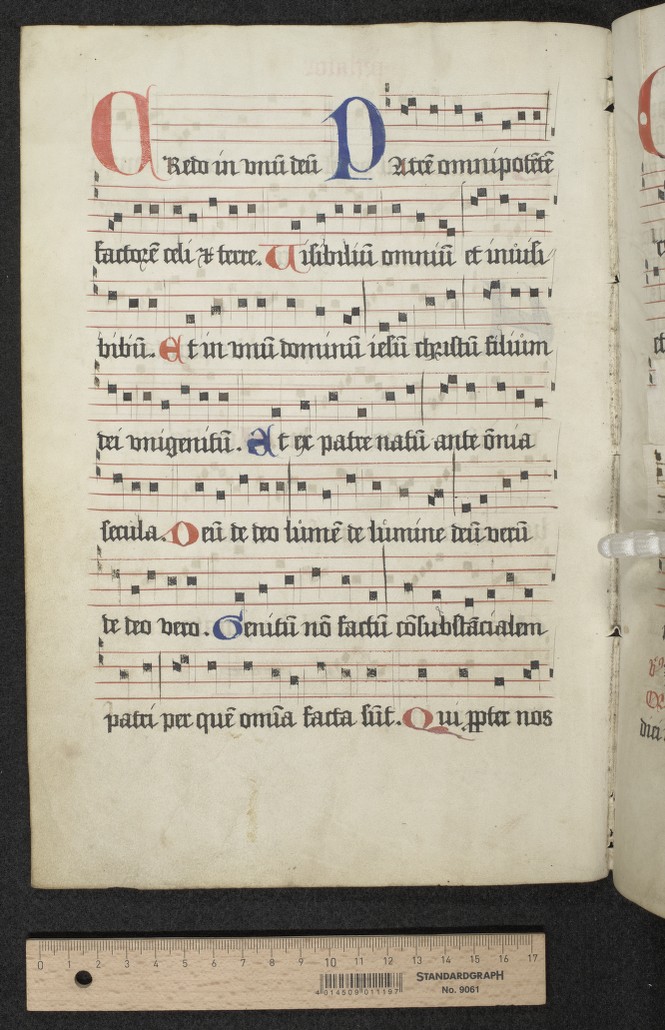 CRedo in vnū deū PAtrē omnipotētē
factorē celi & terre. Uisibiliū omniū et inuisi
bibiū. Et in vnū dominū iesū christū filium
dei vnigenitū. Et ex patre natū ante ōnia
secula. Deū de deo lumē de lumine deū verū
de deo vero. Genitū nō factū cōsubstācialem
patri per quē omīa facta sūt. Qui ꝓpter nos
0 1 2 3 4 5 6 7 8 9 10 11 12 13 14 15 16 17
STANDARDGRAPH
4 014509 011197
No. 9061